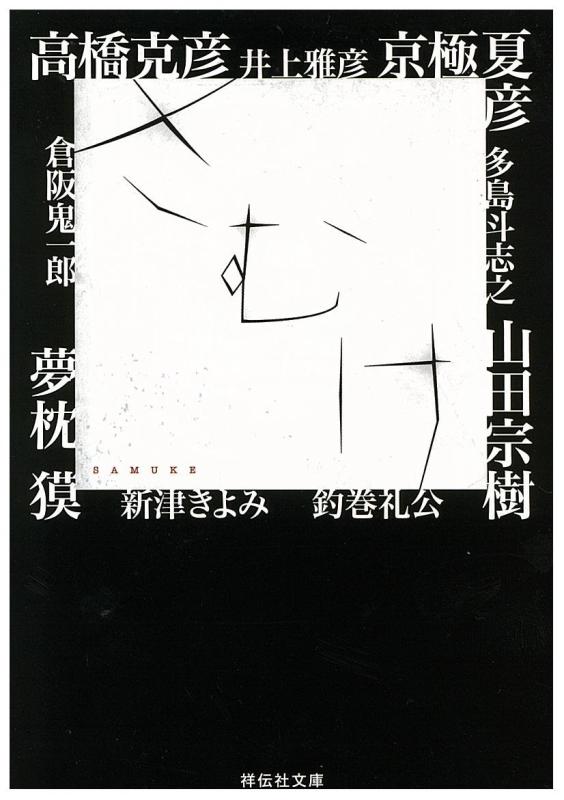 高橋克彦
井上雅彦
京極夏彦
倉阪鬼一郎
多島斗志之
さむけ
夢枕獏
山田宗樹
SAMUKE
新津きよみ
釣巻礼公
祥伝社文庫